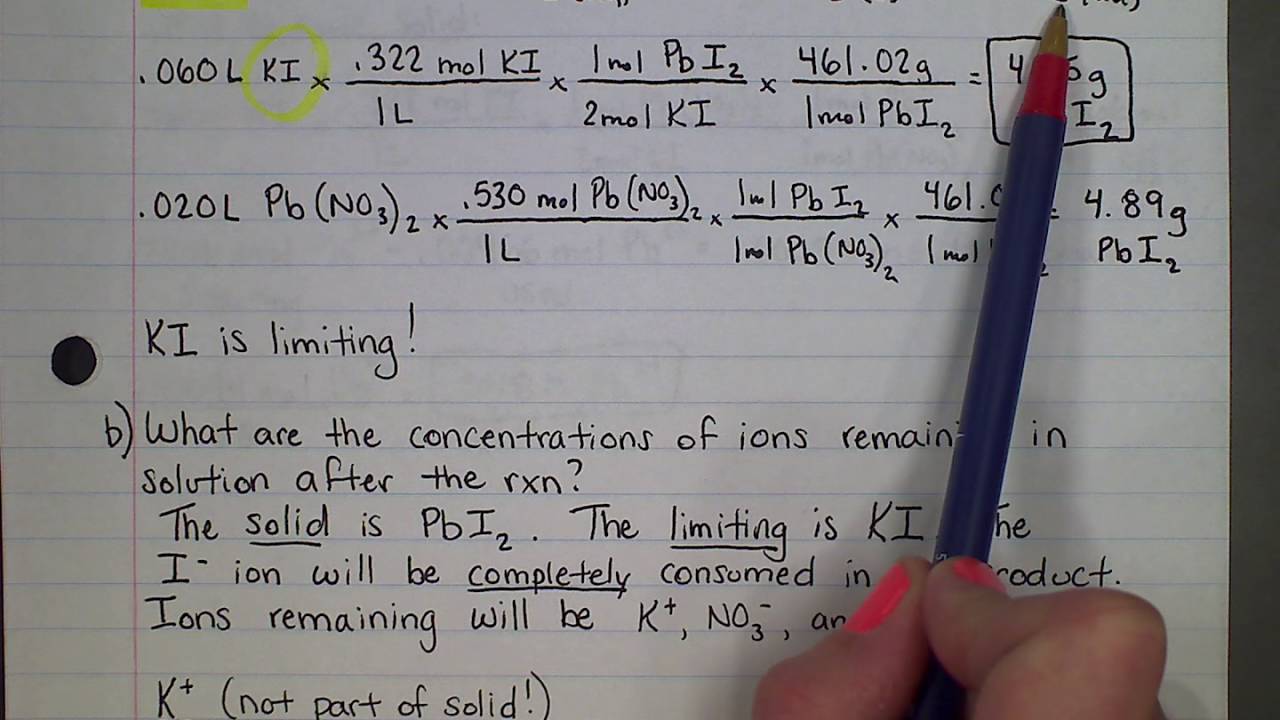 .060L KI × .322 mol KI / 1L × 1mol PbI₂ / 2mol KI × 461.02g / 1mol PbI₂ = 4 g I₂
.020L Pb(NO₃)₂ × .530 mol Pb(NO₃)₂ / 1L × 1mol PbI₂ / 1mol Pb(NO₃)₂ × 461.0 / 1mol = 4.89g PbI₂
KI is limiting!
b) What are the concentrations of ions in
solution after the rxn?
The solid is PbI₂. The limiting is KI
I⁻ ion will be completely consumed in
Ions remaining will be K⁺, NO₃⁻,
K⁺ (not part of solid!)